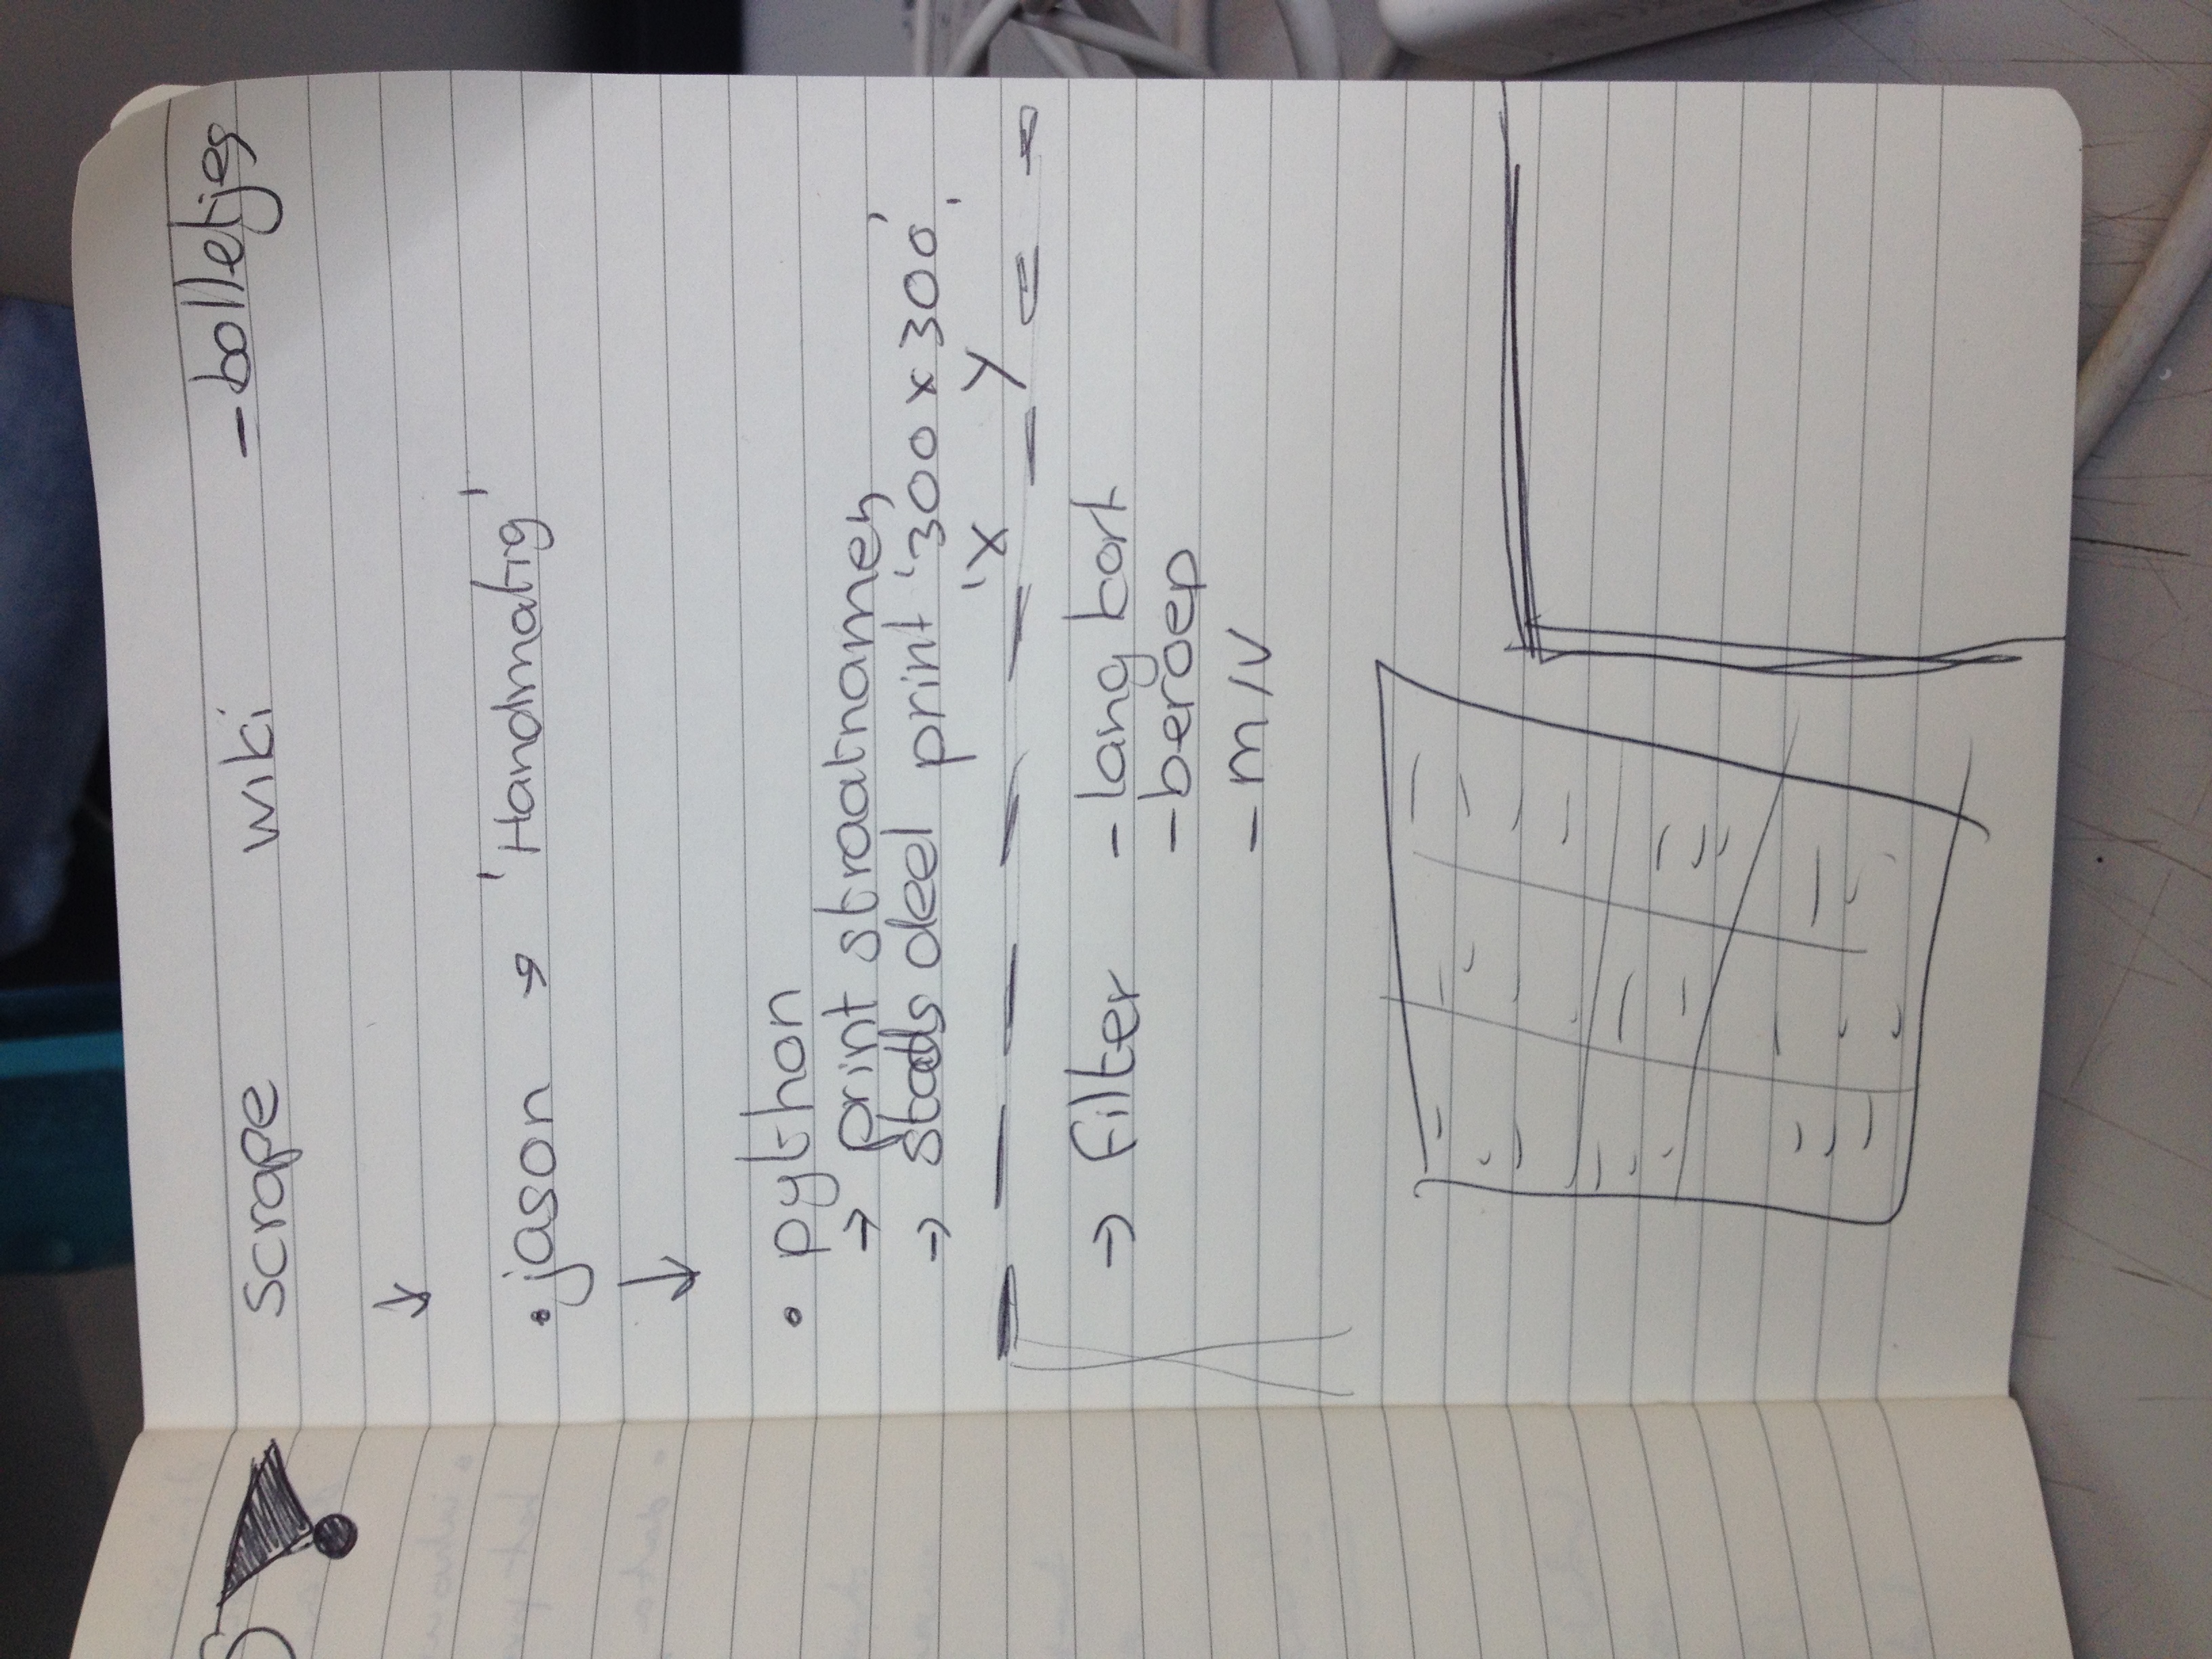 scrape wiki - bolletjes
↓
• jason → 'Handmatig'
↓
• python
→ print straatnamen
→ stads deel print '300 x 300'
'X Y'
→ filter - lang kort
- beroep
- m/v